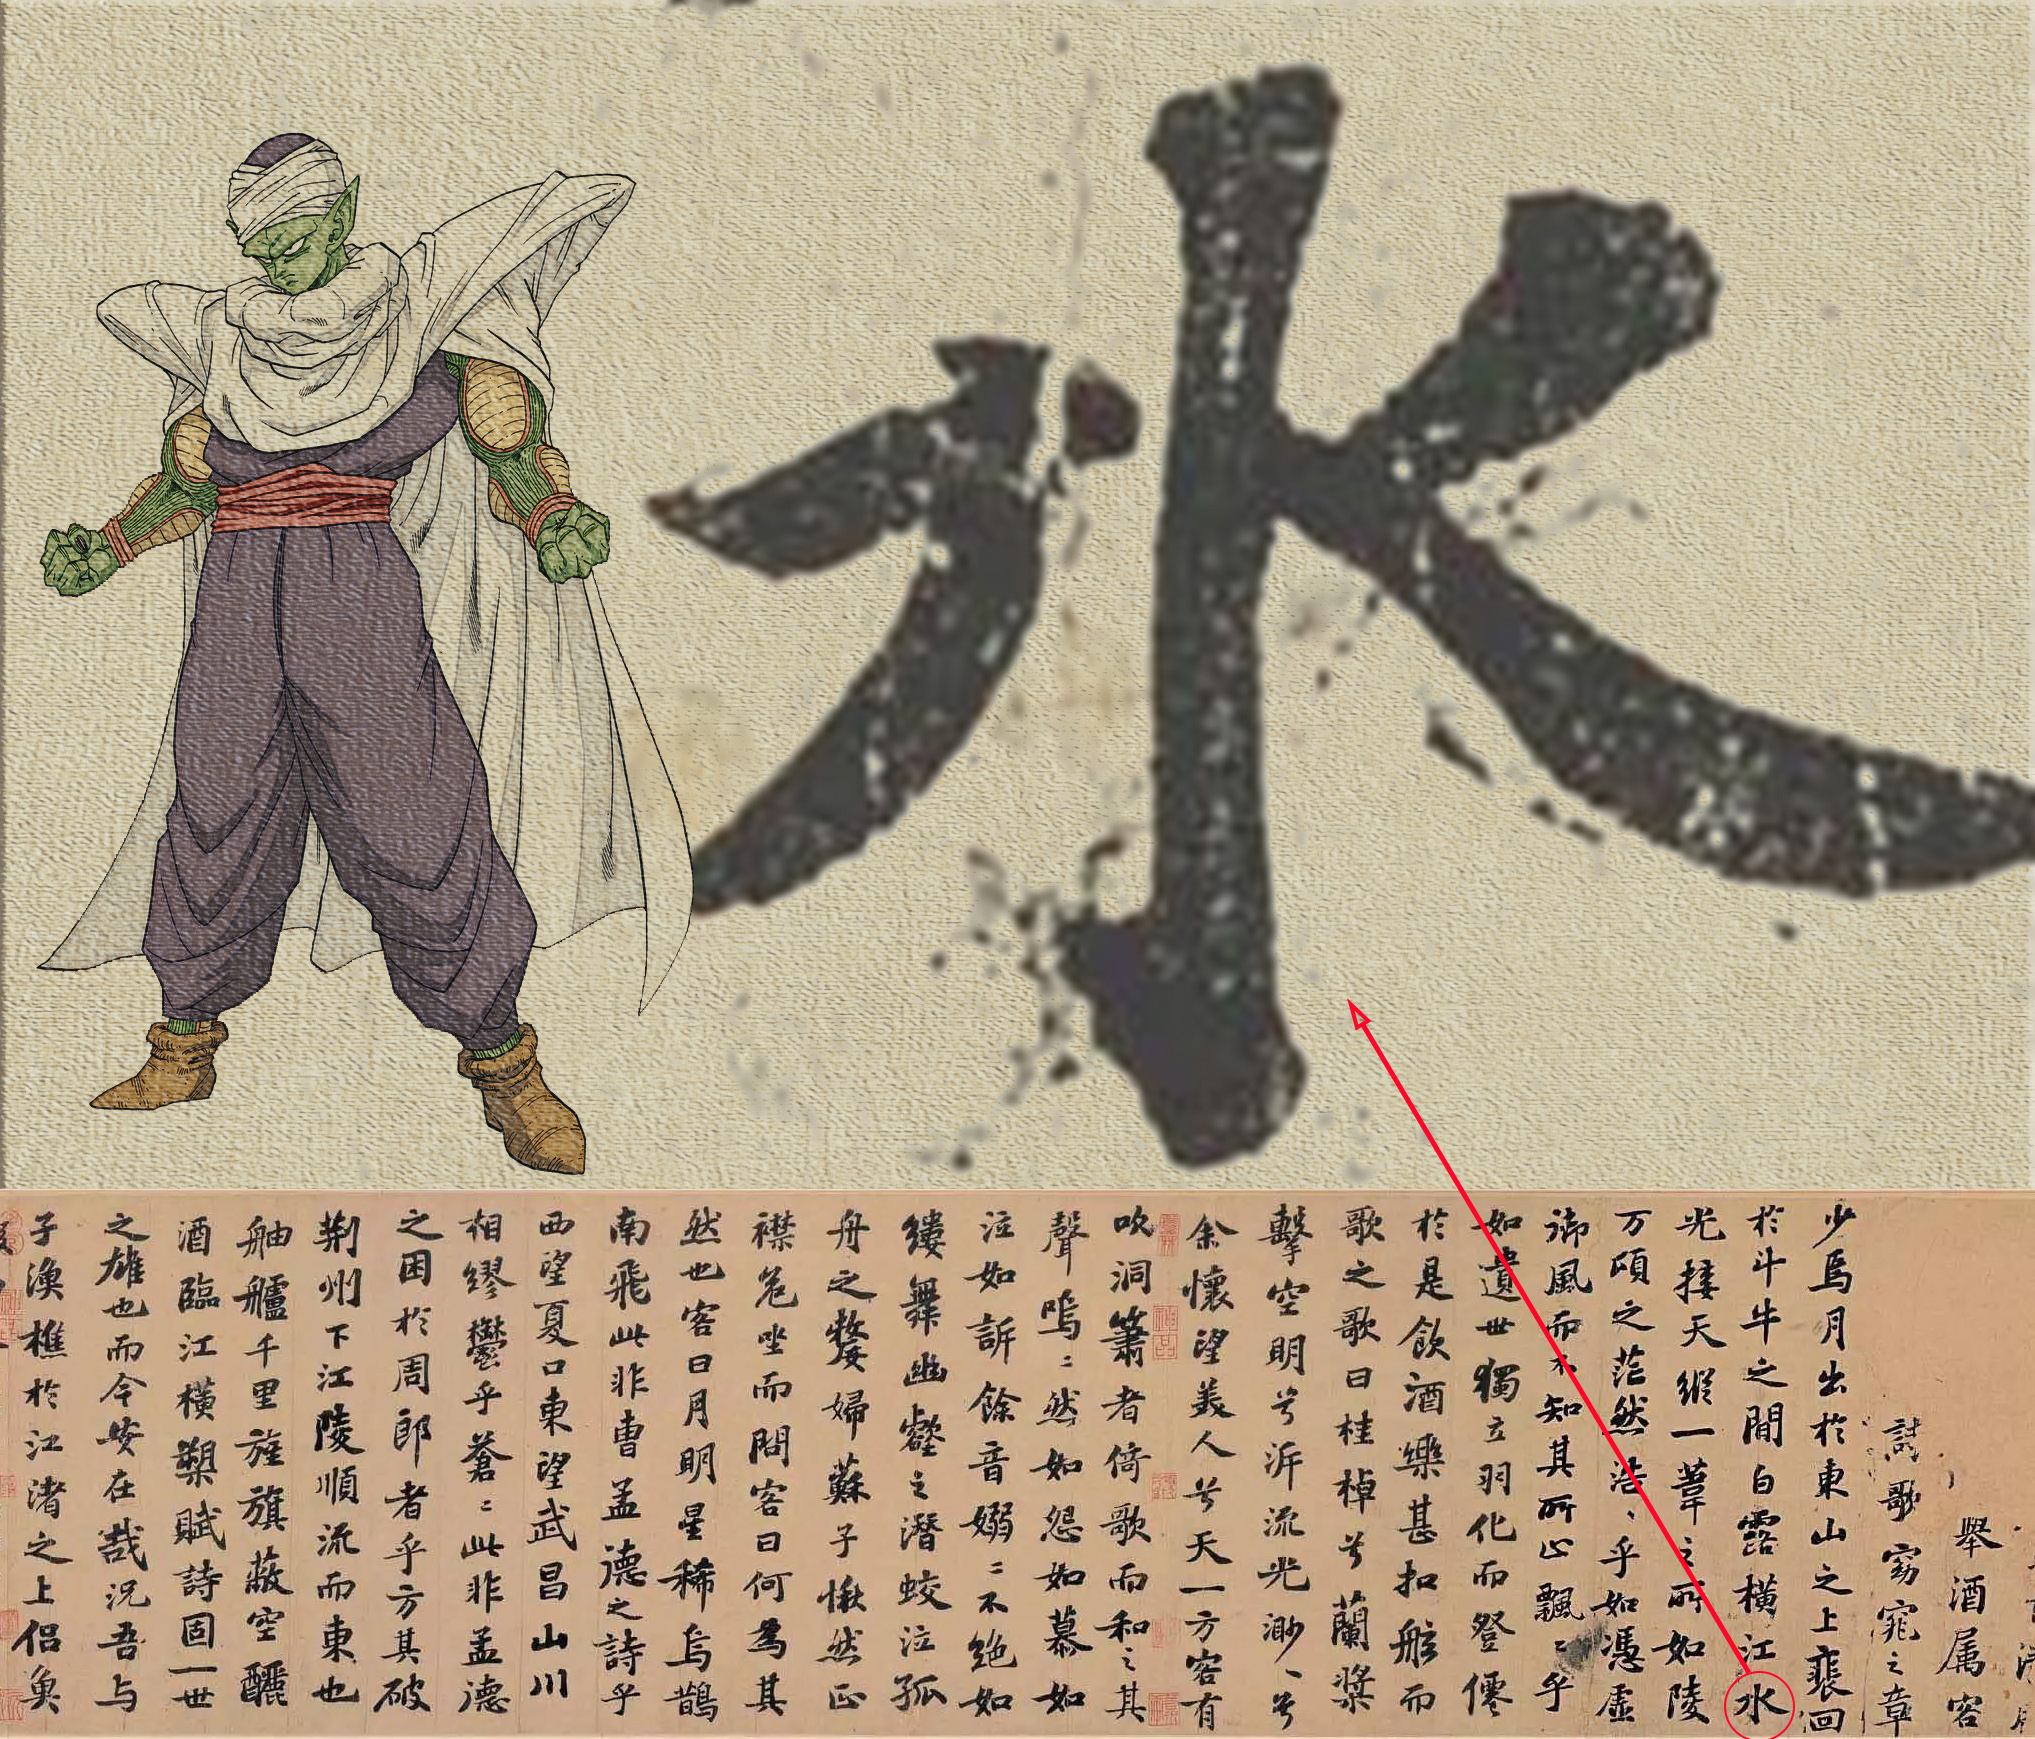 水
舉酒属客
詩歌窈窕之章
少焉月出於東山之上裵回
於斗牛之間白露橫江水
光接天縱一葦之所如陵
万頃之茫然浩〻乎如憑虛
御風而不知其所止飄〻乎
如遺世獨立羽化而登僊
於是飲酒樂甚扣舷而
歌之歌曰桂棹兮蘭槳
擊空明兮泝流光渺〻兮
余懷望美人兮天一方客有
吹洞簫者倚歌而和之其
聲嗚〻然如怨如慕如
泣如訴餘音嫋〻不絕如
縷舞幽壑之潛蛟泣孤
舟之嫠婦蘇子愀然正
襟危坐而問客曰何為其
然也客曰月明星稀烏鵲
南飛此非曹孟德之詩乎
西望夏口東望武昌山川
相繆鬱乎蒼〻此非孟德
之困於周郎者乎方其破
荆州下江陵順流而東也
舳艫千里旌旗蔽空釃
酒臨江橫槊賦詩固一世
之雄也而今安在哉況吾与
子漁樵於江渚之上侶魚